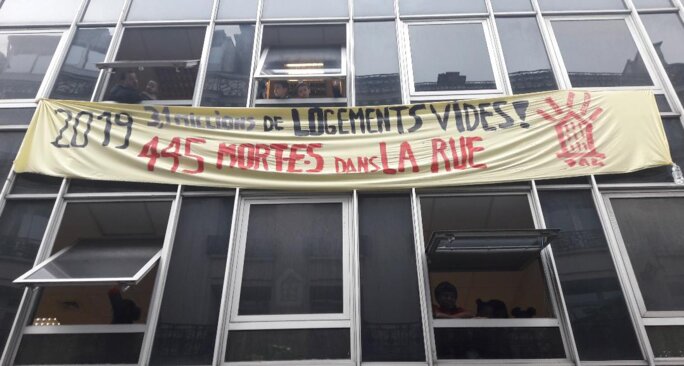 2019 3,1 millions DE LOGEMENTS VIDES!
445 MORTES DANS LA RUE
DAL